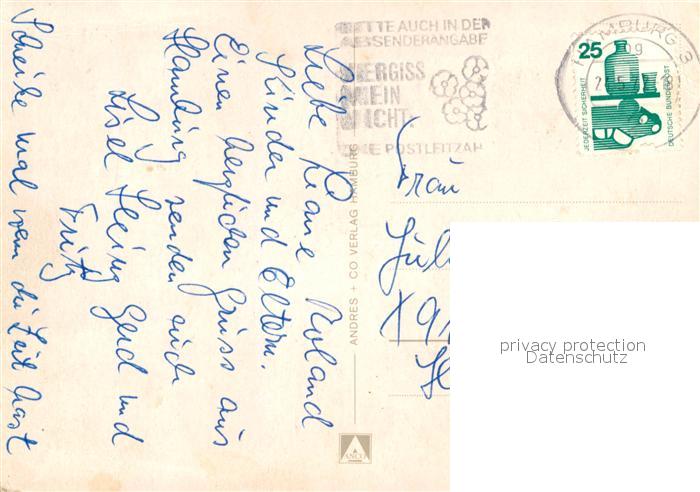 Liebe Liane Roland
Kinder und Eltern.
Einen herzlichen Gruss aus
Hamburg senden euch
Lisel Heinz Gerd und
Fritz
Schreibe mal wenn du Zeit hast
BITTE AUCH IN DER
ABSENDERANGABE
VERGISS
MEIN
NICHT.
DIE POSTLEITZAH
HAMBURG 3
25
JEDERZEIT SICHERHEIT
DEUTSCHE BUNDESPOST
Frau
ANDRES + CO VERLAG HAMBURG
ANCO
privacy protection
Datenschutz